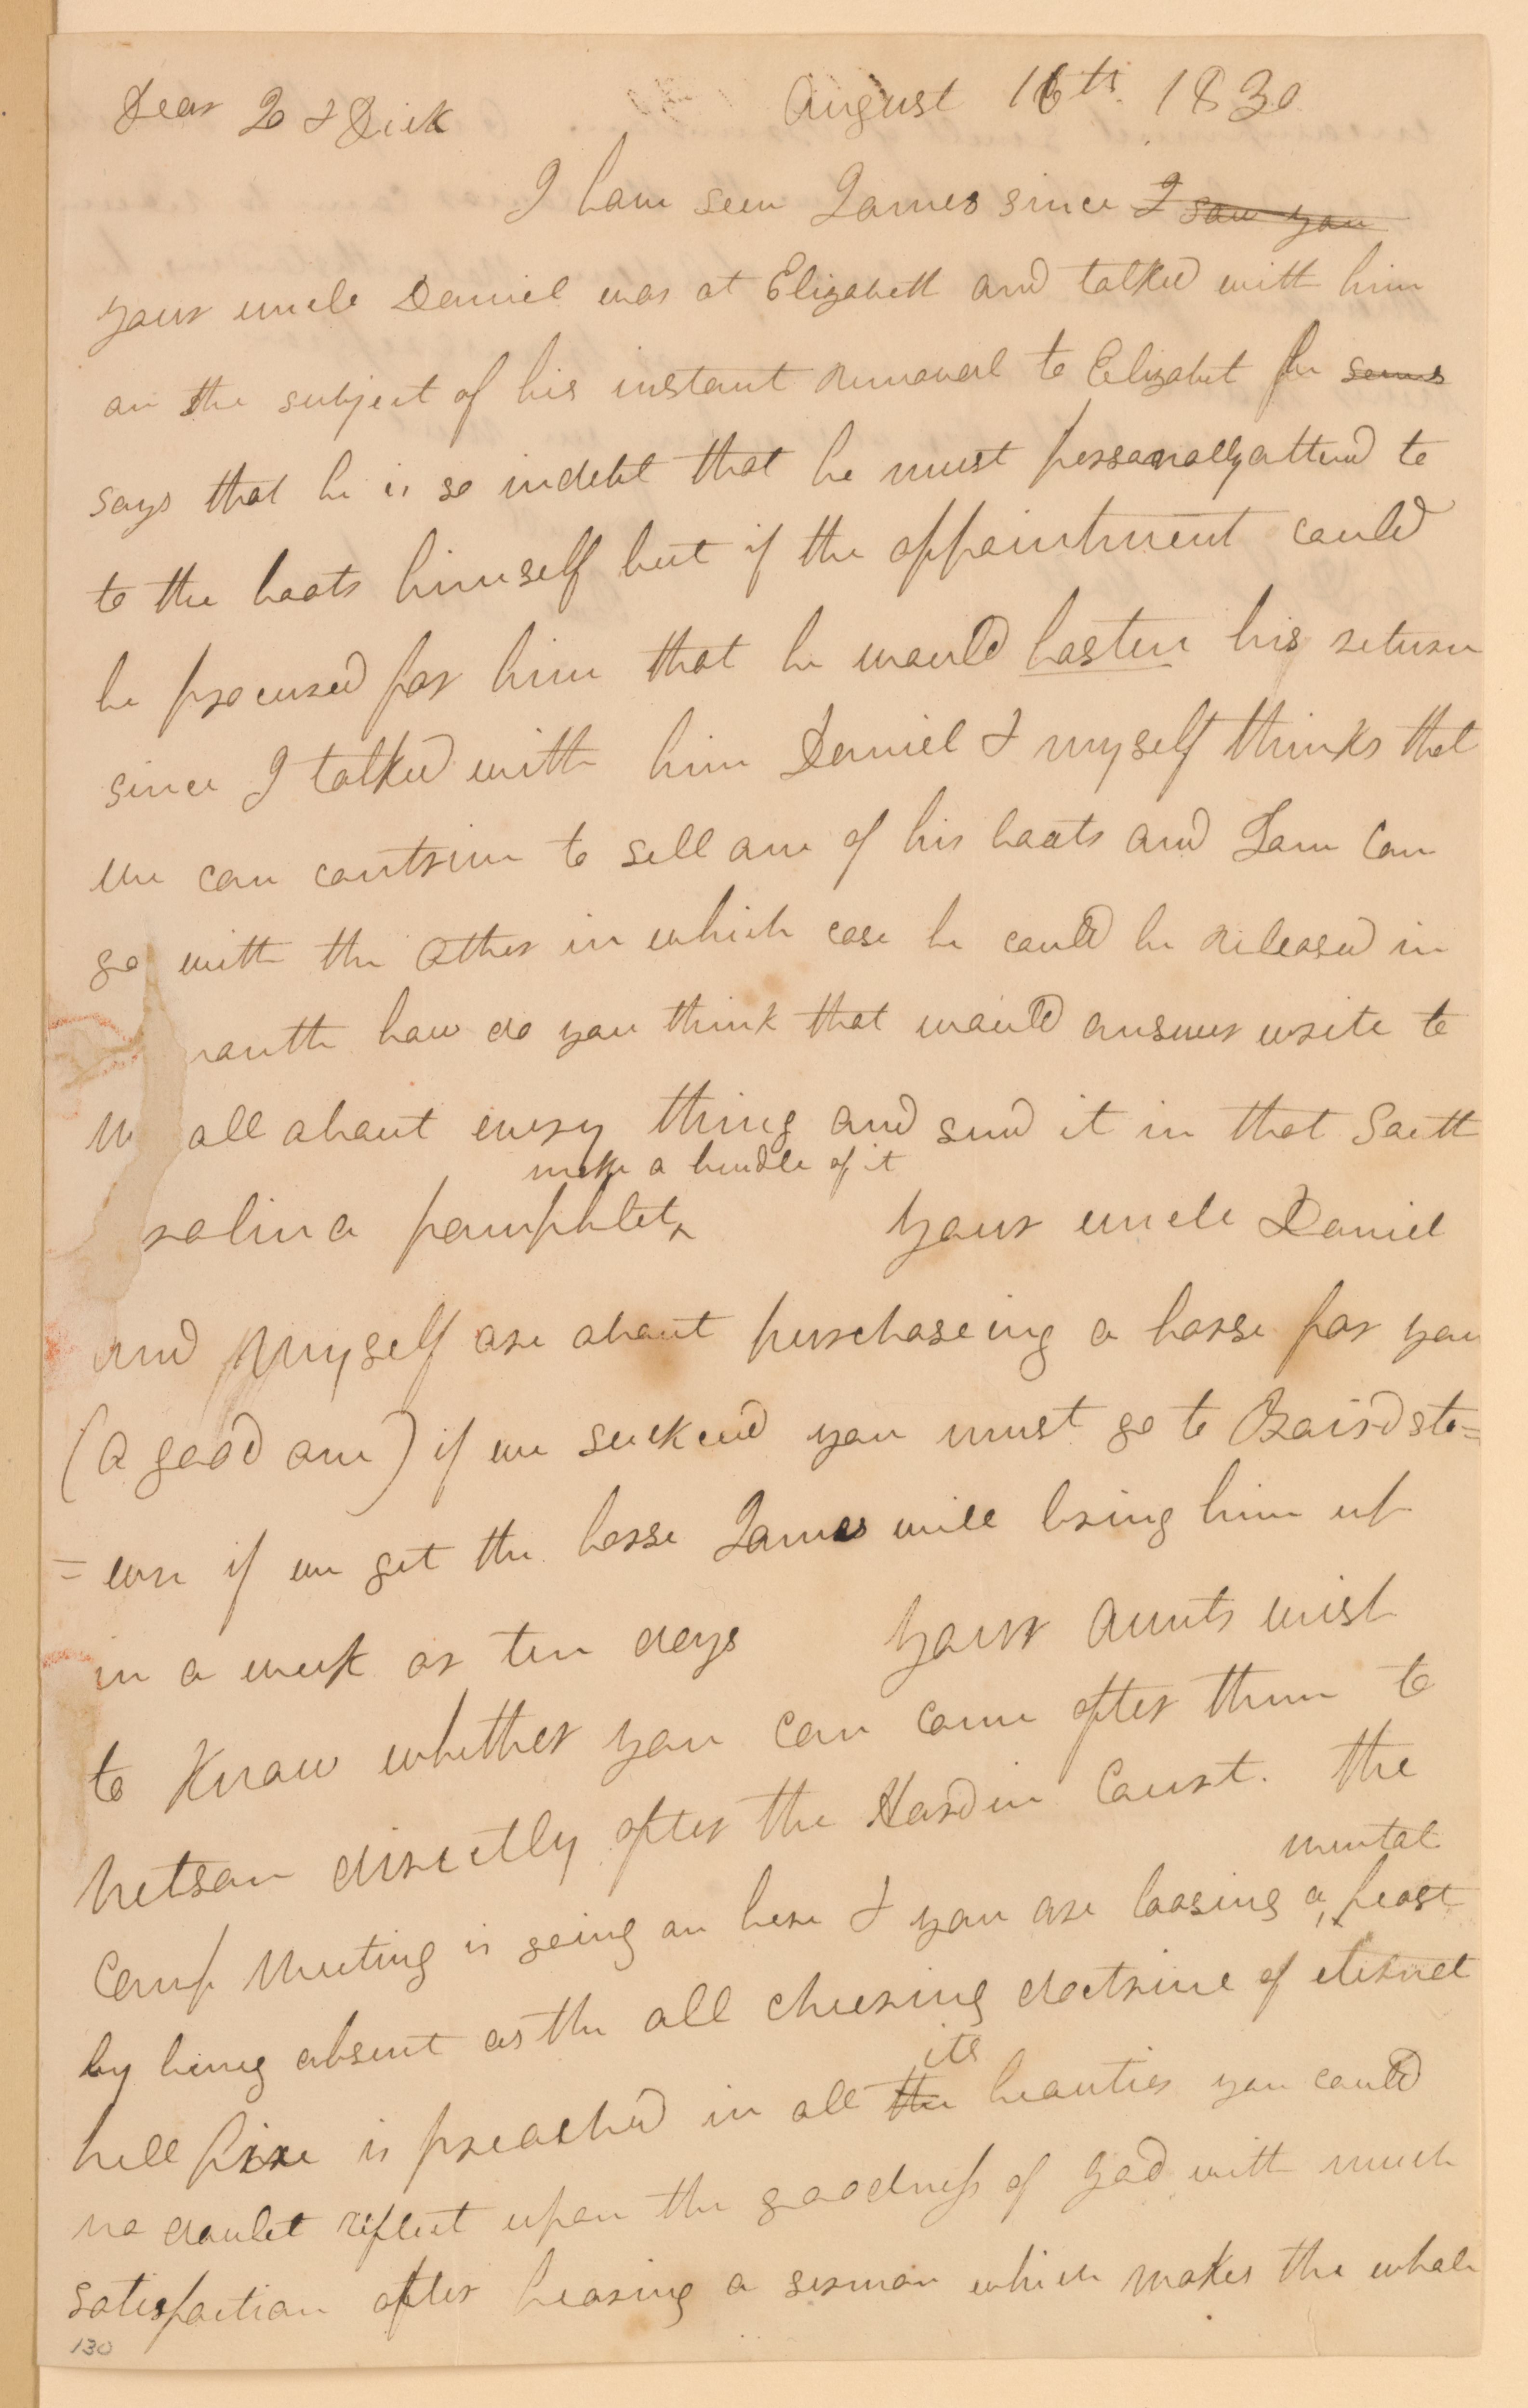 August 16th. 1830
Dear Lo & Dick
I have seen James since I saw you
your uncle Daniel was at Elizabeth and talked with him
on the subject of his instant removeal to Elizabet he seems
says that he is so indebt that he must personally attend to
to the boats himself but if the appointment could
be procured for him that he would hasten his return
since I talked with him Daniel & myself thinks that
we can contrive to sell one of his boats and Sam Can
go with the other in which case he could be released in
month how do you think that would answer write to
all about every thing and send it in that South
make a bundle of it
rolina pamphlet^ Your uncle Daniel
and Myself are about purchaseing a horse for you
(a good one) if we suckeed you must go to Bairdsto=
=wn if we get the horse James will bring him up
in a week or ten days Your Aunts wish
to Know whether you can come after them to
hetson directly after the Hardin Court. The
mental
Camp Meeting is going on here & you are loosing a ^ feast
by being absent as the all cheering doctrine of eternel
its
hell fire is preached in all the beauties you could
no doubt reflect upon the goodness of God with much
satisfaction after hearing a sermon which makes the whole
130